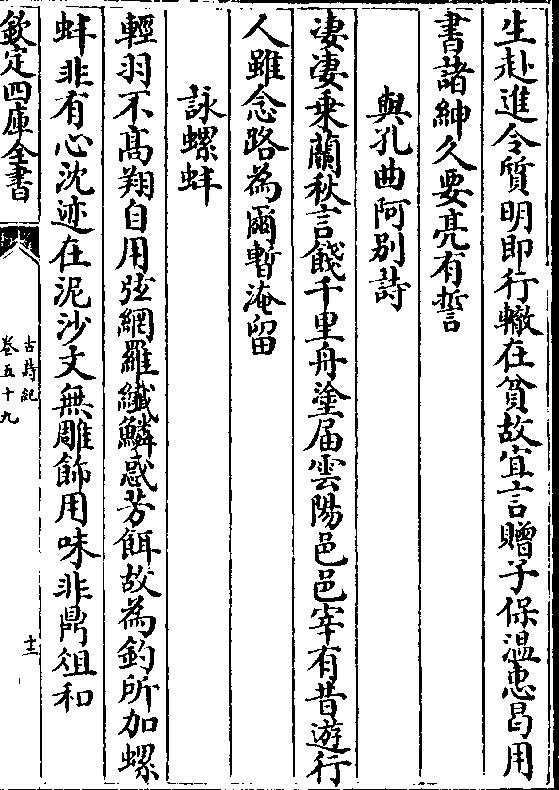 生赴進令質明即行轍在貧故宜言贈子保溫惠曷用
書諸紳久要亮有誓
與孔曲阿别詩
淒淒乗蘭秋言餞千里舟塗届雲陽邑邑宰有昔遊行
人雖念路為爾暫淹留
詠螺蚌
輕羽不髙翔自用弦網羅纖鱗惑芳餌故為釣所加螺
蚌非有心沈迹在泥沙文無雕飾用味非鼎俎和
欽定四庫全書
古詩紀
卷五十九
十三